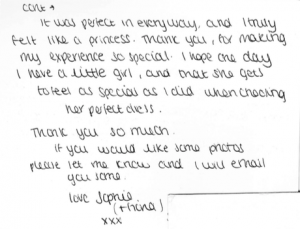 cont →
It was perfect in every way, and I truly
felt like a princess. Thank you, for making
my experience so special. I hope one day
I have a little girl, and that she gets
to feel as special as I did when
her perfect dress.
Thank you so much.
If you would like some photos
please let me know and I will email
you some.
love Sophie
xxx